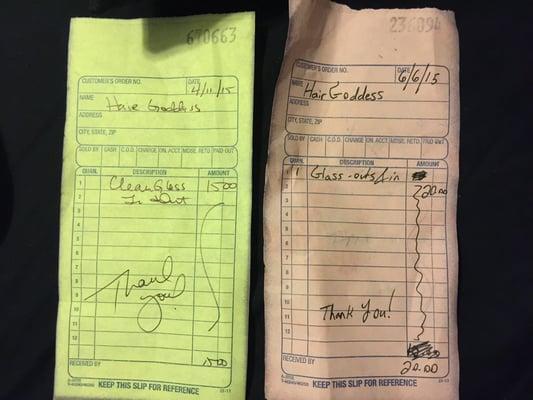 670663
CUSTOMER'S ORDER NO. DATE 4/11/15
NAME Hair Goddess
ADDRESS
CITY, STATE, ZIP
SOLD BY CASH C.O.D. CHARGE ON. ACCT. MDSE. RETD. PAID OUT
QUAN. DESCRIPTION AMOUNT
1 Clean Glass 1500
2 In & Out
3
4
5
6
7
8 Thank
9 you!
10
11
12
1500
RECEIVED BY
KEEP THIS SLIP FOR REFERENCE
236094
CUSTOMER'S ORDER NO. DATE 6/6/15
NAME Hair Goddess
ADDRESS
CITY, STATE, ZIP
SOLD BY CASH C.O.D. CHARGE ON. ACCT. MDSE. RETD. PAID OUT
QUAN. DESCRIPTION AMOUNT
1 Glass - outs/in
2 20.00
3
4
5
6
7
8
9
10
11 Thank You!
12
RECEIVED BY 20.00
KEEP THIS SLIP FOR REFERENCE